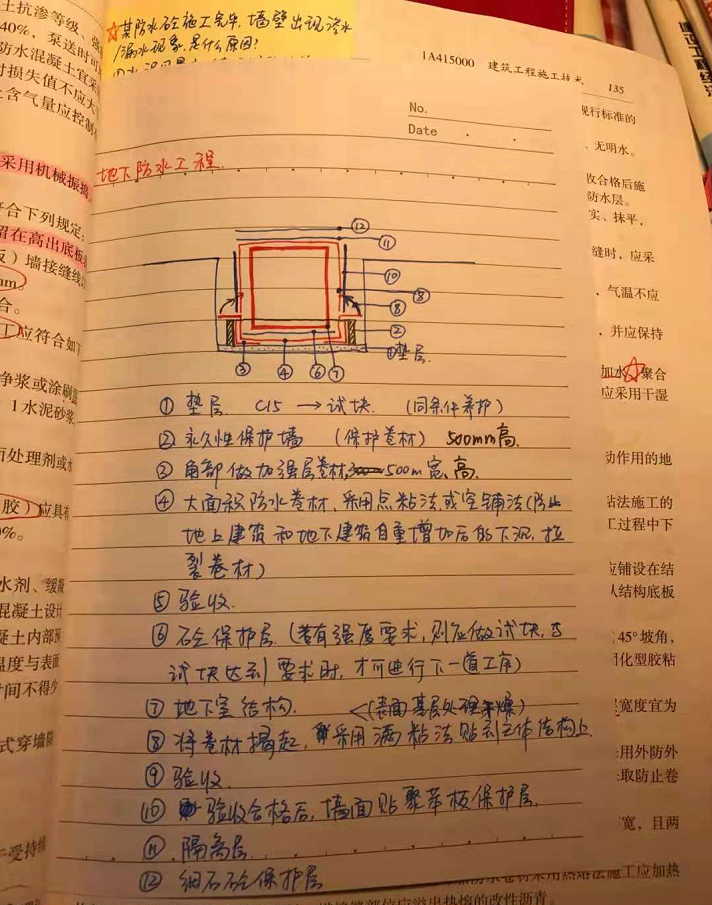 ☆某防水砼施工完毕,墙壁出现渗水
/漏水现象,是什么原因?
1A415000 建筑工程施工技术
135
No.
Date
地下防水工程.
⑫
⑪
⑩
⑧
⑧
②
①垫层.
③ ④ ⑥ ⑦
① 垫层. C15 → 试块. (同条件养护)
② 永久性保护墙 (保护卷材) 500mm高.
③ 角部做加强层卷材, 500m宽、高.
④ 大面积防水卷材,采用点粘法或空铺法(防止
地上建筑和地下建筑自重增加后的下沉,拉
裂卷材)
⑤ 验收.
⑥ 砼保护层.(若有强度要求,则应做试块,当
试块达到要求时,才可进行下一道工序)
⑦ 地下室结构. <(表面基层处理干燥)
⑧ 将卷材揭起,采用满粘法贴到主体结构上.
⑨ 验收.
⑩ 验收合格后,墙面贴聚苯板保护层.
⑪ 隔离层.
⑫ 细石砼保护层
土抗渗等级,强
40%,泵送时
防水混凝土宜采
时损失值不应大
含气量应控制
采用机械振捣
符合下列规定:
留在高出底板
板)墙接缝线
mm。
合。
工应符合如下
净浆或涂刷
1水泥砂浆
面处理剂或水
胶)应具有
0%。
水剂、缓凝
混凝土设计
凝土内部预
温度与表面
时间不得少
式穿墙
于受持续
现行标准的
、无明水。
收合格后施
防水层。
实、抹平,
缝时,应采
,气温不应
,并应保持
加水☆聚合
应采用干湿
动作用的地
粘法施工的
工过程中下
应铺设在结
从结构底板
45°坡角,
固化型胶粘
宽度宜为
用外防外
取防止卷
宽,且两
防水卷材采用热熔法施工应加热
接缝部位应溢出热熔的改性沥青。